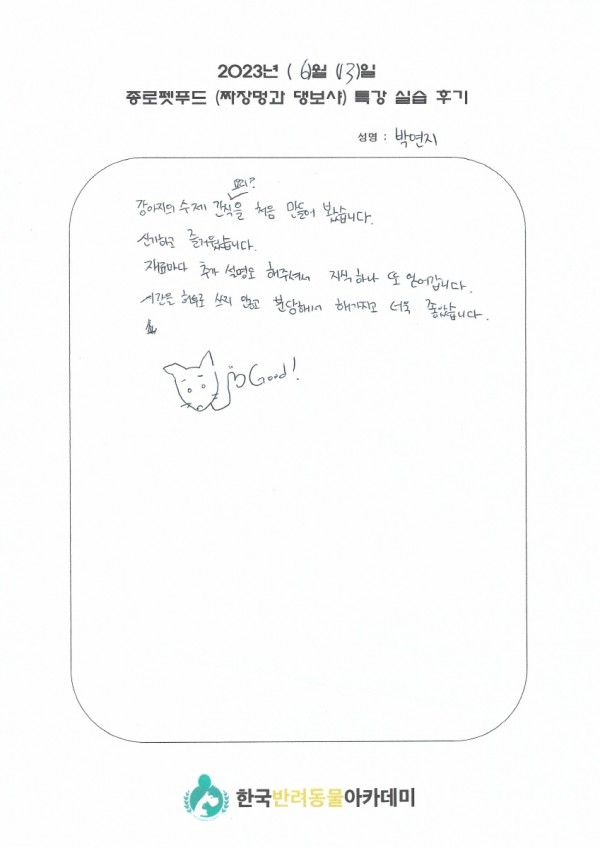 2023년 ( 6)월 (13)일
종로펫푸드 (짜장멍과 댕보샤) 특강 실습 후기
성명 : 박연지
요리?
강아지의 수제 간식을 처음 만들어 보았습니다.
신기하고 즐거웠습니다.
재료마다 추가 설명도 해주셔서 지식하나 또 얻어갑니다.
시간을 허투로 쓰지 않고 분담해서 해가지고 너무 좋았습니다.
Good!
한국반려동물아카데미